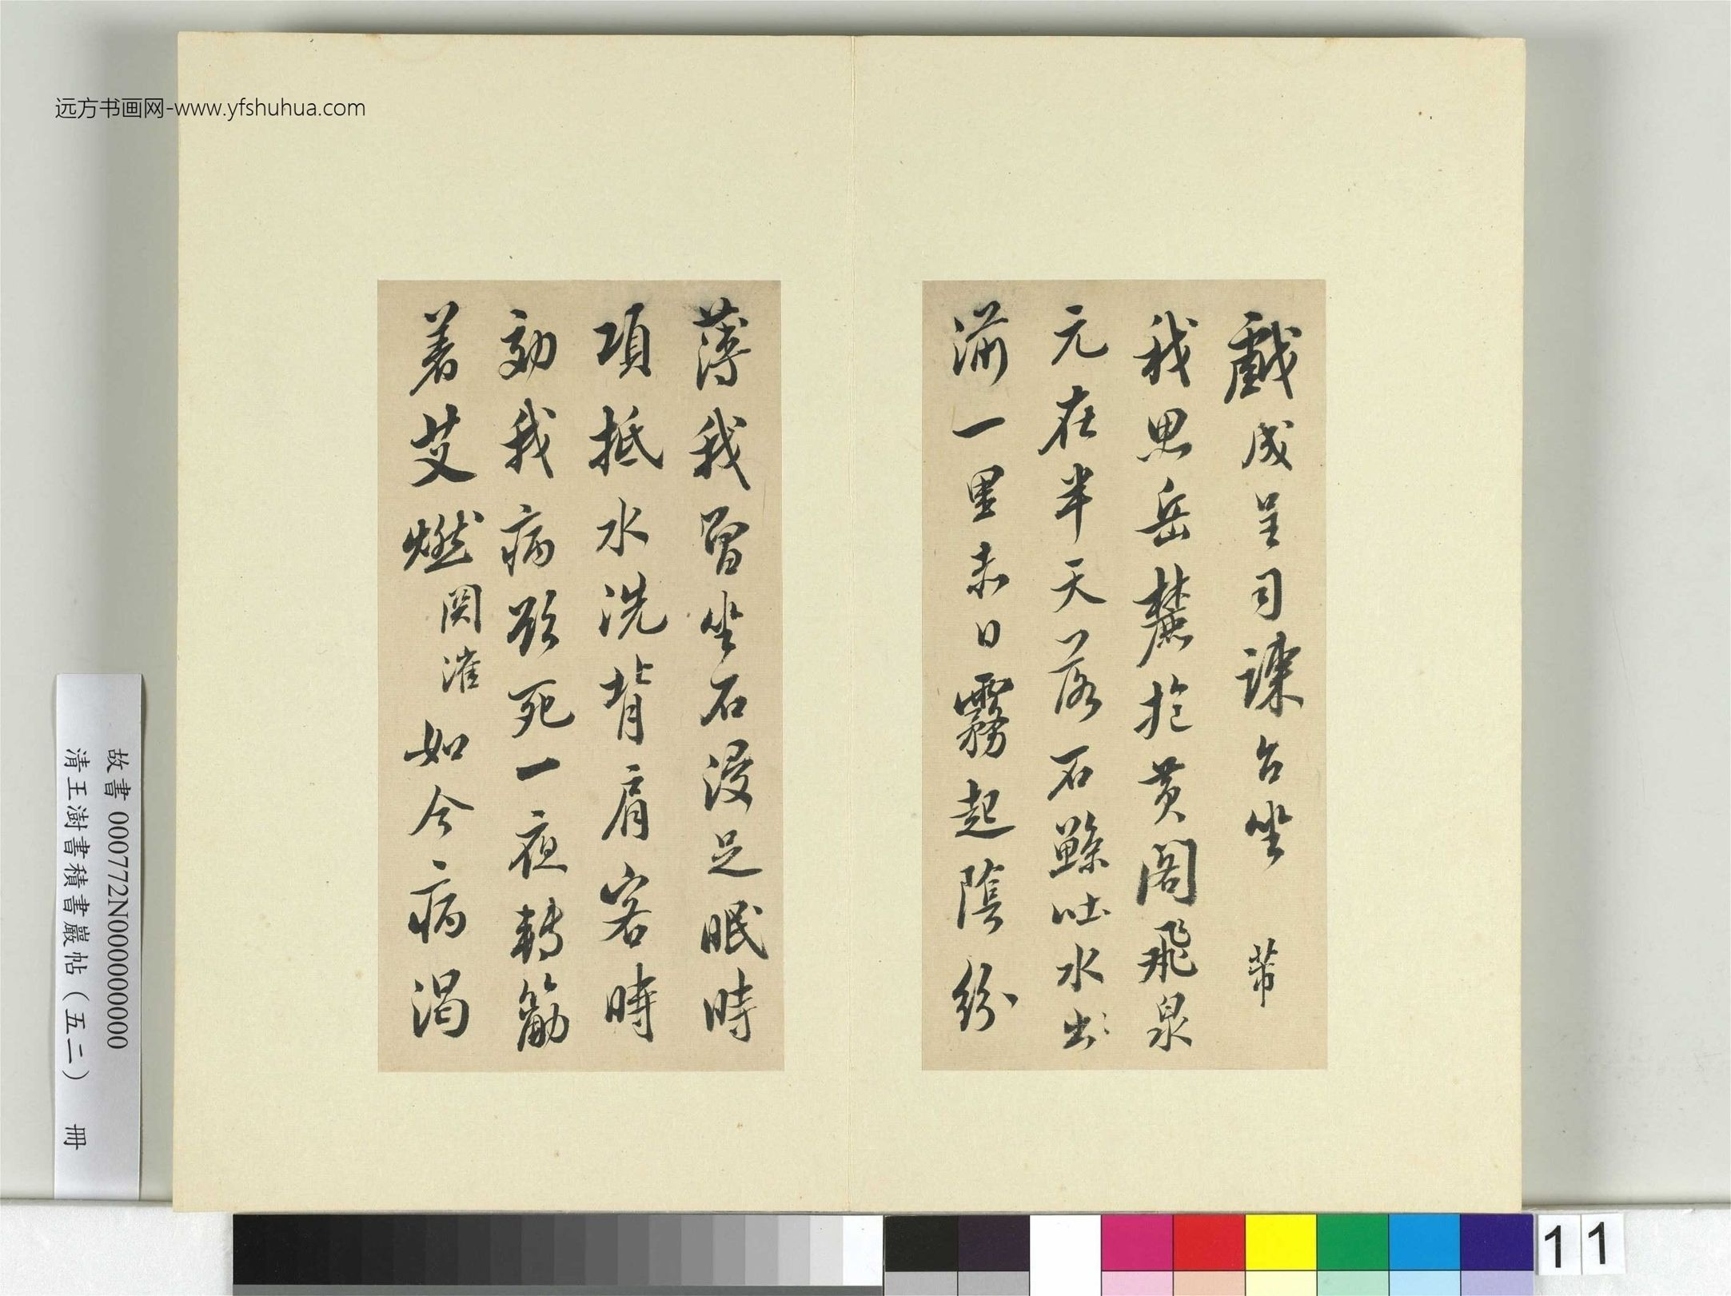 远方书画网-www.yfshuhua.com
戲成呈司諫台坐 芾
我思岳麓抱黄閣飛泉
元在半天落石鯨吐水出
湔一里赤日霧起陰紛
薄我曾坐石浸足眠時
項抵水洗背肩客時
効我病欲死一夜轉筋
著艾燃関灌如今病渴
故書 000772N000000000
清王澍書積書巖帖（五二） 冊
11